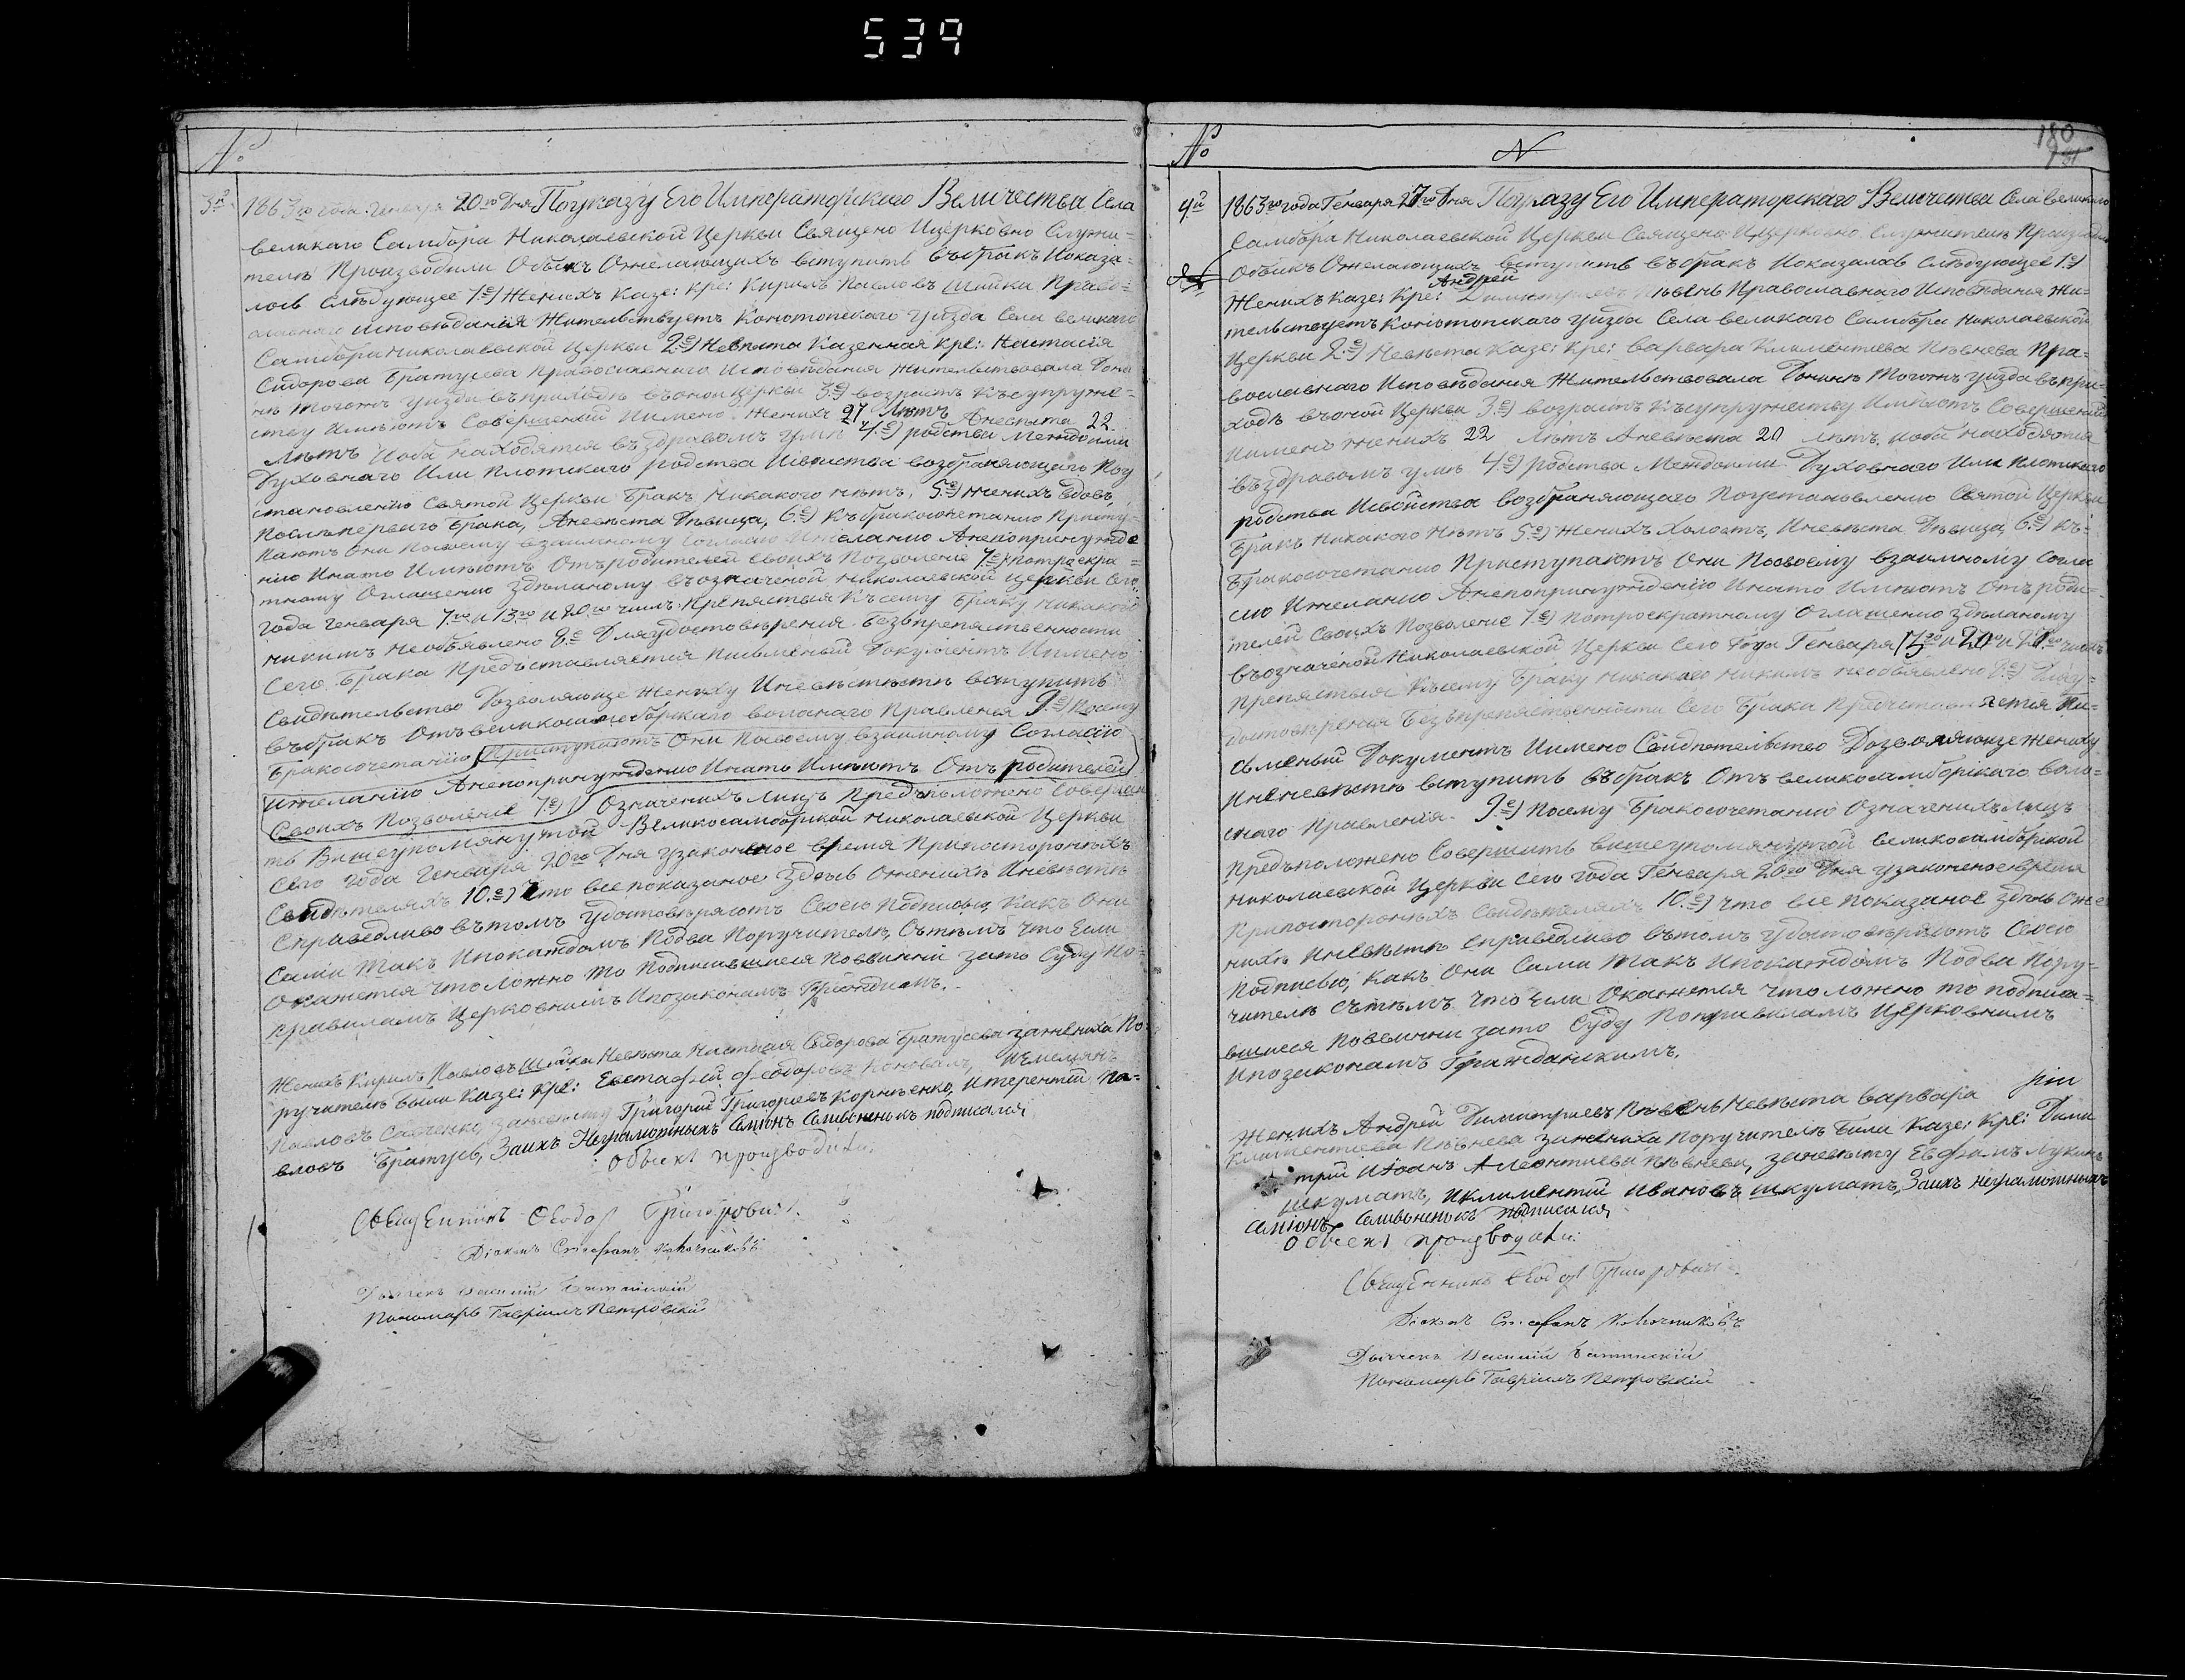 539
№
3й
1863го года Генваря 20го Дня По указу Его Императорского Величества Села
великаго Самбора Николаевской Церкви Священо Ицерковно Служи=
тели Производили Обыскъ Ожелающихъ вступить въбракъ Ипоказа=
лось Слѣдующее 1.е) Женихъ Казе: кре: Кирилъ Павловъ Шийка Право=
славнаго исповѣданія Жительствуетъ Конотопскаго уѣзда Села великаго
Самбора Николаевской Церкви 2.е) Невѣста Казенная Кре: Настасія
Сидорова Братусева православнаго Исповѣданія жительствовала Дони
нѣ тогожъ уѣзда въприходѣ въоной церкви 3.е) возрастъ къ супруже=
ству Имѣютъ Совершеный Имено: женихъ 27 Лѣтъ Аневѣста 22
лѣтъ Иоба находятся въздравомъ умѣ 4.е) родства Междоими
Духовнаго Или плотскаго родства Исвойства возбраняющаго Поу
становленію Святой Церкви Бракъ Никакого нѣтъ, 5.е) женихъ вдовъ,
послѣ перваго Брака, Аневѣста Дѣвица, 6.е) Къбракосочетанію Присту=
паютъ Они Посвоему взаимному Согласію Ижеланію Анепопринужде
нію Инато Имѣютъ Отъродителей Своихъ Позволеніе 7.е) потроекра=
тному Оглашенію Здѣланому въозначеной Николаевской церкви Сего
года Генваря 7го и 13го и 20го числъ: Препяствія Ксему Браку никакого
никимъ необъявлено 8.е Для удостовѣренія Безъпрепяственности
Сего Брака Предъставляется письменый Документъ Имено
Свидѣтельство Дозволяюще жениху Иневѣстѣ вступить
въбракъ Отъвеликосамборскаго волоснаго Правленія 9.е) Посему
Бракосочетанію Приступаютъ Они Посвоему взаимному Согласію
Ижеланію Анепопринужденію Инато Имѣютъ Отъ родителей
Своихъ Позволеніе 7.е) Означенихъ лицъ предъположено Соверши
ть Вишеупомянутой Великосамборской Николаевской Церкви
Сего года Генваря 20го Дня узаконеное время Припосторонихъ
Свидѣтеляхъ 10.е) Что все показаное здѣсь Оженихѣ Иневѣстѣ
Справедливо вътомъ удостовѣряютъ Своею Подписью, Какъ Они
Сами Такъ Ипокаждомъ Подва Поручителя, Сътѣмъ что Если
Окажется что Ложно То Подписавшиеся Повинны зато Суду По=
правиламъ Церковнимъ Ипозаконамъ Граждским.
Женихъ Кирилъ Павловъ Шийка Невѣста Настасія Сидорова Братусева зажениха По
ручителѣ Были Казе: Кре: Евстафій Феодоровъ Коноваль, Иемелянъ
Павловъ Савченко заневѣсту Григорій Григориевъ Корнѣенко, Итерентій Па=
вловъ Братусь, Заихъ Неграмотныхъ Семіонъ Селивоненокъ подписался
Обыскъ производили:
Священникъ Феодоръ Григоровичъ.
Діаконъ Стефанъ
Дьячекъ Василій
Пономарь Гавріилъ Петровскій
№
180
4й
1863го года Генваря 27го Дня По указу Его Императорского Величества Села великаго
Самбора Николаевской Церкви Священо Ицерковно Служители Производили
Обыскъ Ожелающихъ вступить въбракъ Ипоказалось Слѣдующее 1.е)
Андрей
Женихъ Казе: Кре: Димитриевъ Пѣвень Православнаго Исповѣданія Жи=
тельствуетъ Конотопскаго уѣзда Села великаго Самбора Николаевской
Церкви 2.е) Невѣста Казе: Кре: Варвара Климентиева Пѣвнева Пра=
вославнаго Исповѣданія Жительствовала Донинѣ Тогожъ уѣзда въпри=
ходѣ въоной Церкви 3.е) возрастъ Къ супружеству Имѣютъ Совершеный
Имено женихъ 22 лѣтъ Аневѣста 20 лѣтъ, иоба находятся
въздравомъ умѣ 4.е) родства Междоими Духовнаго Или плотскаго
родства Исвойства возбраняющаго Поустановленію Святой Церкви
Бракъ Никакого нѣтъ 5.е) Женихъ Холостъ, Иневѣста Дѣвица, 6.е) Къ=
Бракосочетанію Приступаютъ Они Посвоему взаимному Согла
сію Ижеланію Анепопринужденію Инато Имѣютъ Отъ роди=
телей Своихъ Позволеніе 7.е) Потроекратному Оглашению здѣланому
въозначеной Николаевской Церкви Сего года Генваря числъ
препяствія Ксему Браку никакого никимъ необъявлено 8.е) Дляу=
достовѣренія Безъпрепяственности Сего Брака Представляется Пи=
сьменый Документъ Имено Свидѣтельство Дозволяюще Жениху
Иневѣстѣ вступить въбракъ Отъ великосамборскаго воло=
снаго Правленія. 9.е) Посему Бракосочетанію Означенихъ лицъ
предъположено Совершить вишеупомянутой великосамборской
николаевской Церкви сего года Генваря 20го Дня узаконеное время
припосторонихъ Свидѣтеляхъ 10.е) что все показаное здѣсь Оже
нихѣ Иневѣстѣ Справедливо вътомъ удостовѣряютъ Своею
Подписью, какъ Они Сами Такъ Ипокаждомъ Подва Пору=
чителѣ Сътѣмъ что Если Окажется что ложно то подписа=
вшиеся Повинни зато Суду Поправиламъ Церковнимъ
Ипозаконамъ Гражданскимъ.
Женихъ Андрей Димитриевъ Пѣвень Невѣста Варвара
Климентиева Пѣвнева зажениха Поручителѣ били Казе: Кре: Дими
трій Иіоанъ Алеонтиеви Пѣвневи, заневѣсту Евфимъ Лукинъ
шкуматъ, Иклиментий Ивановъ шкуматъ, Заихъ неграмотныхъ
Семіонъ Селивоненокъ подписался
Обыскъ производили:
Священникъ Феодоръ Григоровичъ
Діаконъ Стефанъ
Дьячекъ Василій
Пономарь Гавріилъ Петровскій